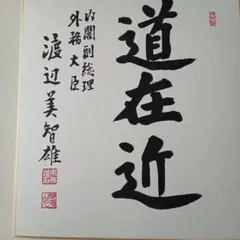 道在近
内閣副総理
外務大臣
渡辺美智雄